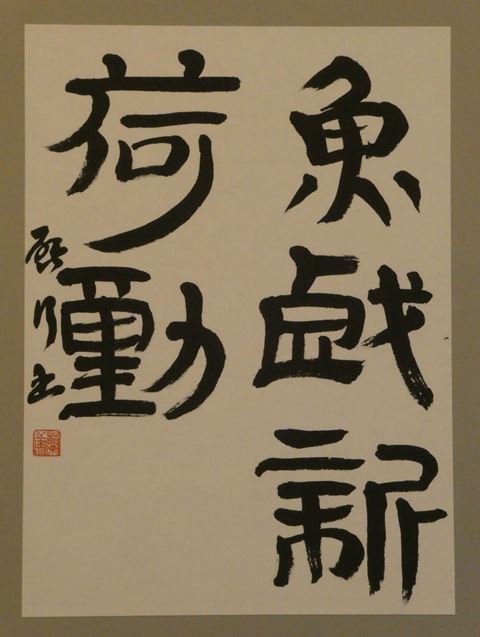 魚戯新
荷動